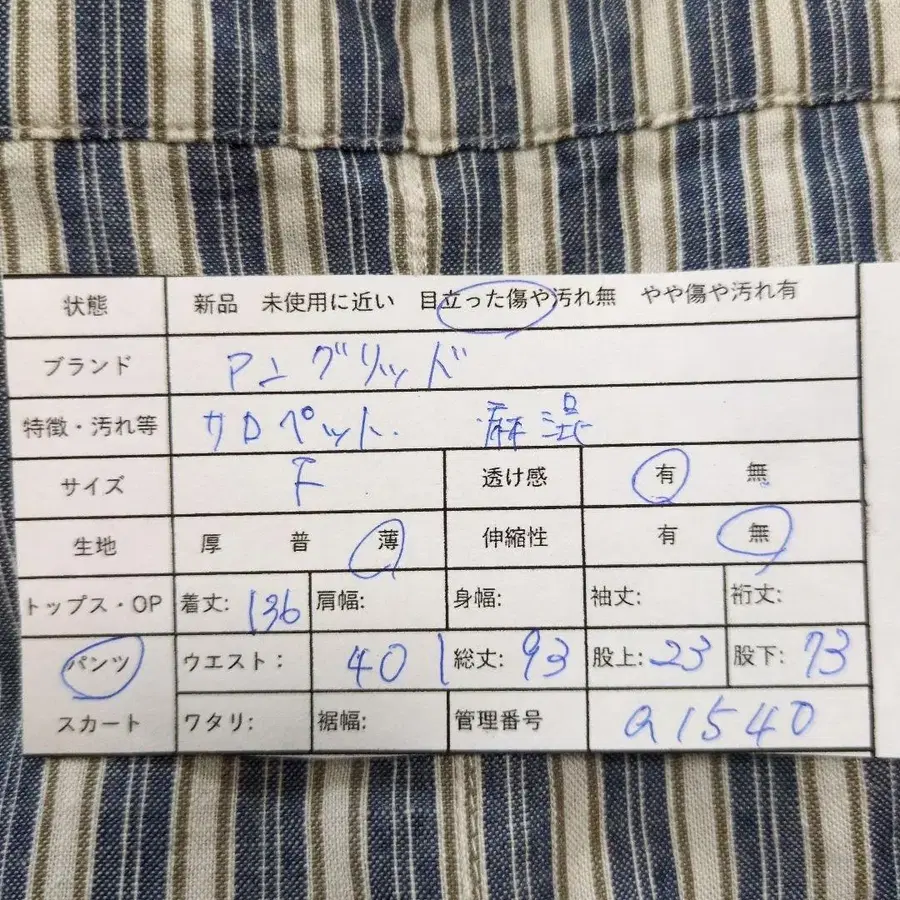 状態 新品 未使用に近い 目立った傷や汚れ無 やや傷や汚れ有
ブランド アングリッド
特徴・汚れ等 サロペット. 麻混
サイズ F 透け感 有 無
生地 厚 普 薄 伸縮性 有 無
トップス・OP 着丈: 136 肩幅: 身幅: 袖丈: 裄丈:
パンツ ウエスト: 40 総丈: 93 股上: 23 股下: 73
スカート ワタリ: 裾幅: 管理番号 a1540